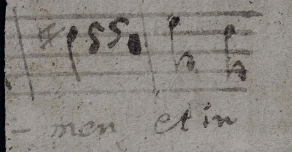 - men et in